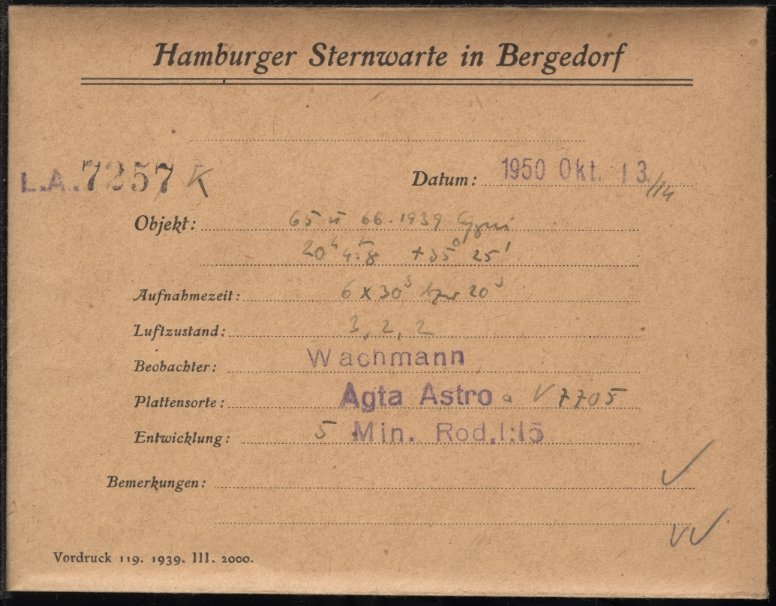 Hamburger Sternwarte in Bergedorf
L.A. 7257 K
Datum: 1950 Okt. 13./14
Objekt: 65 u 66.1939 Cygni
20ʰ 4ᵐ8 +35° 25'
Aufnahmezeit: 6 x 30ˢ bzw 20ˢ
Luftzustand: 3, 2, 2
Beobachter: Wachmann
Plattensorte: Agfa Astro a V 7705
Entwicklung: 5 Min. Rod. 1:15
Bemerkungen: ✓
Vordruck 119. 1939. III. 2000.